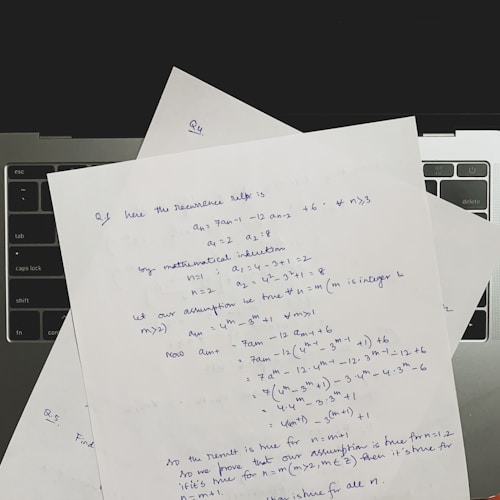 Q4
esc
tab
caps lock
shift
fn
delete
Q1 here the recurrence reln is
an = 7an-1 - 12 an-2 + 6 · ∀ n≥3
a1 = 2 a2 = 8
by mathematical induction
n=1 ; a1 = 4 - 3 + 1 = 2
n=2 a2 = 4² - 3² + 1 = 8
let our assumption be true ∀ n = m (m is integer &
m>2) am = 4^m - 3^m + 1 ∀ m≥1
Now am+1 = 7am - 12 am-1 + 6
= 7am - 12(4^m-1 - 3^m-1 + 1) + 6
= 7a^m - 12·4^m-1 - 12·3^m-1 - 12 + 6
= 7(4^m - 3^m + 1) - 3·4^m - 4·3^m - 6
= 4·4^m - 3·3^m + 1
= 4^(m+1) - 3^(m+1) + 1
so the result is true for n = m+1
so we prove that our assumption is true for n=1,2
if it's true for n = m (m>2, m∈Z) then it's true for
n = m+1.
is true for all n.
Q5
Find